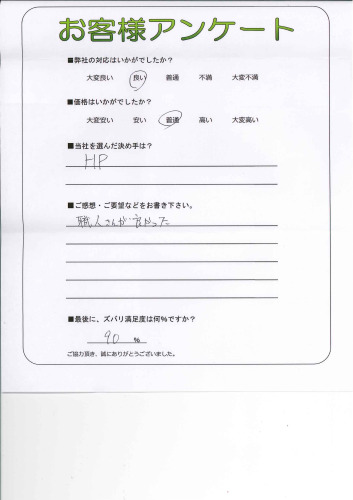 お客様アンケート
■弊社の対応はいかがでしたか？
大変良い 良い 普通 不満 大変不満
■価格はいかがでしたか？
大変安い 安い 普通 高い 大変高い
■当社を選んだ決め手は？
HP
■ご感想・ご要望などをお書き下さい。
職人さんが良かった
■最後に、ズバリ満足度は何％ですか？
90 ％
ご協力頂き、誠にありがとうございました。